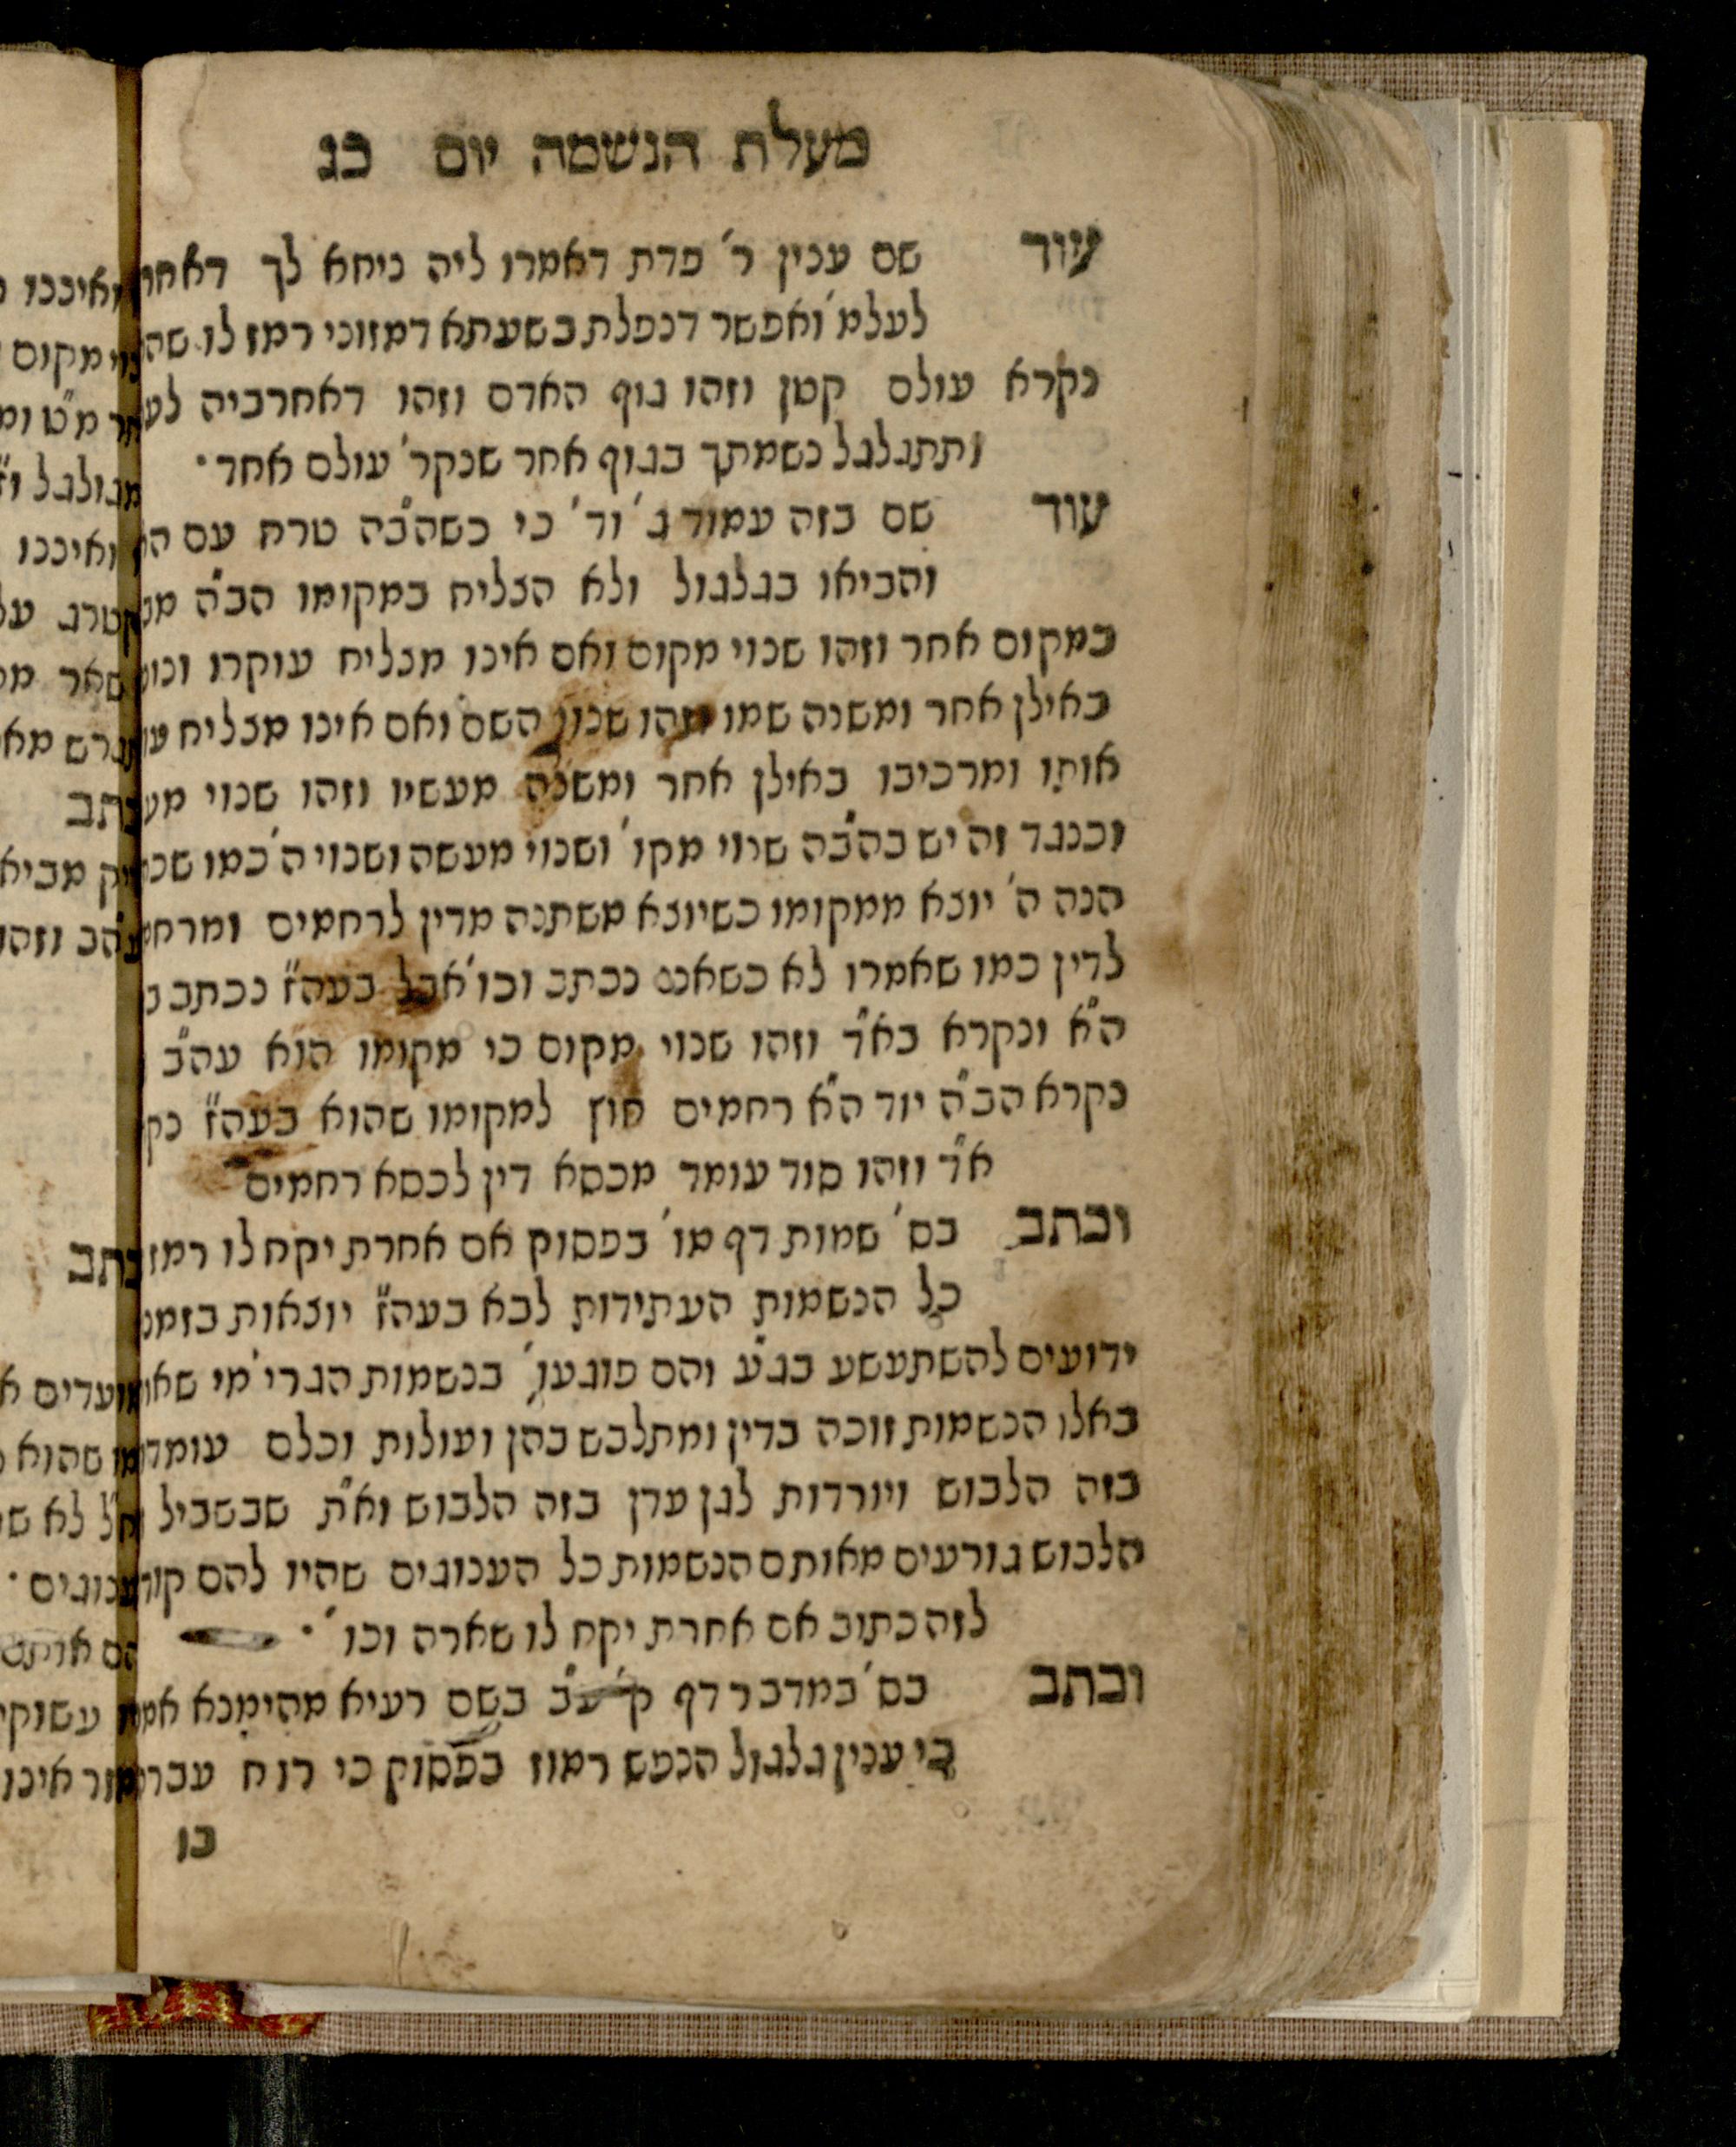 מעלת הנשמה יום כג
עוד שם ענין ר' פדת דאמרו ליה ניחא לך דאחר
לעלמ' ואפשר דנפלת בשעתא דמזוני רמז לו שה
נקרא עולם קטן וזהו גוף האדם וזהו דאחרביה לע
ותתגלגל נשמתך בגוף אחר שנקר' עולם אחד·
עוד שם בזה עמוד ג' וד' כי כשהב"ה טרח עם
והביאו בגלגול ולא הצליח במקומו הב"ה
במקום אחר וזהו שנוי מקום ואם אינו מצליח עוקרו
באילן אחר ומשנה שמו וזהו שנוי השם ואם אינו מצליח
אותו ומרכיבו באילן אחר ומשנה מעשיו וזהו שנוי מע
וכנגד זה יש בהב"ה שנוי מקו' ושנוי מעשה ושנוי ה' כמו
הנה ה' יוצא ממקומו כשיוצא משתנה מדין לרחמים ומרחמ
לדין כמו שאמרו לא כשאני נכתב וכו' אבל בעה"ז נכתב ב
ה"א ונקרא בא"ד וזהו שנוי מקום כי מקומו הוא עה"ב
נקרא הב"ה יוד ה"א רחמים חוץ למקומו שהוא בעה"ז נק
א"ד וזהו סוד עומד מכסא דין לכסא רחמים
וכתב בס' שמות דף מו' בפסוק אם אחרת יקח לו רמז
כל הנשמות העתידות לבא בעה"ז יוצאות בזמנ
ידועים להשתעשע בג"ע והם פוגעו' בנשמות הגרי' מי
באלו הנשמות זוכה בדין ומתלבש בהן ועולות וכלם עומד
בזה הלבוש ויורדות לגן עדן בזה הלבוש וא"ת שבשביל
הלבוש גורעים מאותם הנשמות כל הענוגים שהיו להם
לזה כתוב אם אחרת יקח לו שארה וכו'·
וכתב בס' במדבר דף ק' ע"ב בשם רעיא מהימנא
כי ענין גלגול הנפש רמוז בפסוק כי רוח עבר
בו